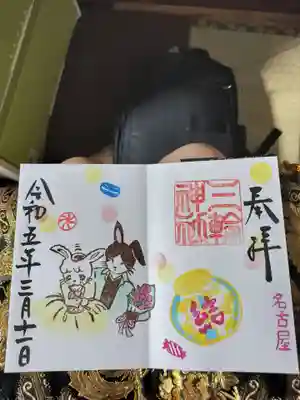 奉拝
三輪
神社
名古屋
令和五年三月十一日